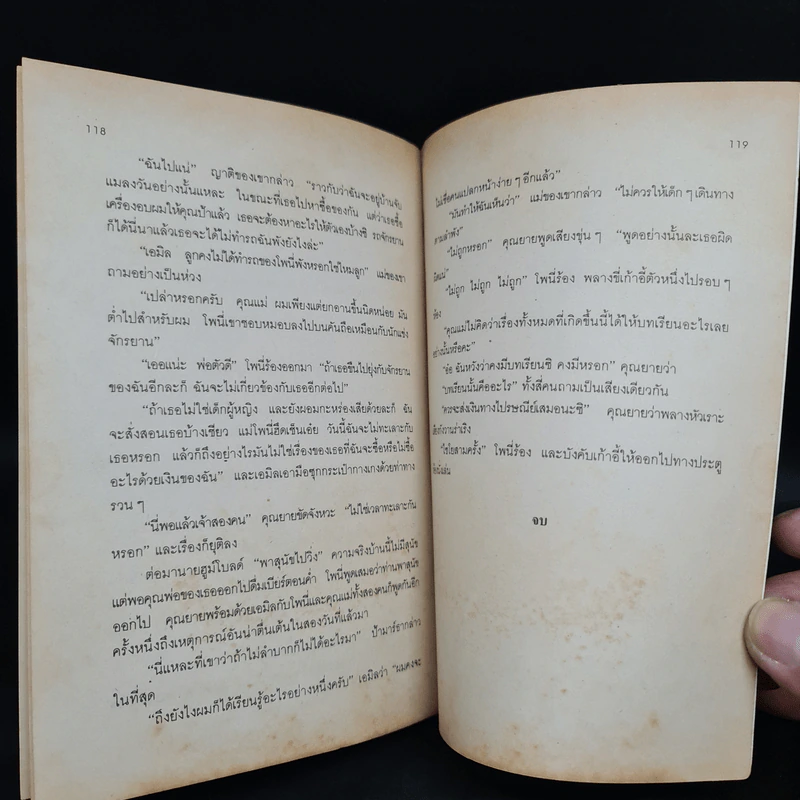 118
“ฉันไปแน่” ญาติของเขากล่าว “ราวกับว่าฉันจะอยู่บ้านจับ
แมลงวันอย่างนั้นแหละ ในขณะที่เธอไปหาซื้อของกัน แต่ว่าเธอซื้อ
เครื่องอบผมให้คุณป้าแล้ว เธอจะต้องหาอะไรให้ตัวเองบ้างซิ รถจักรยาน
ก็ได้นี่นาแล้วเธอจะได้ไม่ทำรถฉันพังยังไงล่ะ”
“เอมิล ลูกคงไม่ได้ทำรถของโพนี่พังหรอกใช่ไหมลูก” แม่ของเขา
ถามอย่างเป็นห่วง
“เปล่าหรอกครับ คุณแม่ ผมเพียงแต่ยกอานขึ้นนิดหน่อย มัน
ต่ำไปสำหรับผม โพนี่เขาชอบหมอบลงไปบนคันถือเหมือนกับนักแข่ง
จักรยาน”
“เออแน่ะ พ่อตัวดี” โพนี่ร้องออกมา “ถ้าเธอขืนไปยุ่งกับจักรยาน
ของฉันอีกละก็ ฉันจะไม่เกี่ยวข้องกับเธออีกต่อไป”
“ถ้าเธอไม่ใช่เด็กผู้หญิง และยังผอมกะหร่องเสียด้วยละก็ ฉัน
จะสั่งสอนเธอบ้างเชียว แม่โพนี่ฮึดเซ็นเอ๋ย วันนี้ฉันจะไม่ทะเลาะกับ
เธอหรอก แล้วก็ถึงอย่างไรมันไม่ใช่เรื่องของเธอที่ฉันจะซื้อหรือไม่ซื้อ
อะไรด้วยเงินของฉัน” และเอมิลเอามือซุกกระเป๋ากางเกงด้วยท่าทาง
รวน ๆ
“นี่พอแล้วเจ้าสองคน” คุณยายขัดจังหวะ “ไม่ใช่เวลาทะเลาะกัน
หรอก” และเรื่องก็ยุติลง
ต่อมานายฮูมโบลด์ “พาสุนัขไปวิ่ง” ความจริงบ้านนี้ไม่มีสุนัข
แต่พอคุณพ่อของเธอออกไปดื่มเบียร์ตอนค่ำ โพนี่พูดเสมอว่าท่านพาสุนัข
ออกไป คุณยายพร้อมด้วยเอมิลกับโพนี่และคุณแม่ทั้งสองคนก็พูดกันอีก
ครั้งหนึ่งถึงเหตุการณ์อันน่าตื่นเต้นในสองวันที่แล้วมา
“นี่แหละที่เขาว่าถ้าไม่ลำบากก็ไม่ได้อะไรมา” ป้ามาร์ธากล่าว
ในที่สุด
“ถึงยังไงผมก็ได้เรียนรู้อะไรอย่างหนึ่งครับ” เอมิลว่า “ผมคงจะ
119
ไม่เชื่อคนแปลกหน้าง่าย ๆ อีกแล้ว”
“มันทำให้ฉันเห็นว่า” แม่ของเขากล่าว “ไม่ควรให้เด็ก ๆ เดินทาง
ตามลำพัง”
“ไม่ถูกหรอก” คุณยายพูดเสียงขุ่น ๆ “พูดอย่างนั้นละเธอผิด
“ไม่ถูก ไม่ถูก ไม่ถูก” โพนี่ร้อง พลางขี่เก้าอี้ตัวหนึ่งไปรอบ ๆ
ห้อง
“คุณแม่ไม่คิดว่าเรื่องทั้งหมดที่เกิดขึ้นนี้ได้ให้บทเรียนอะไรเลย
อย่างนั้นหรือคะ”
“อ๋อ ฉันหวังว่าคงมีบทเรียนซิ คงมีหรอก” คุณยายว่า
“บทเรียนนั้นคืออะไร” ทั้งสี่คนถามเป็นเสียงเดียวกัน
“ควรจะส่งเงินทางไปรษณีย์เสมอนะซิ” คุณยายว่าพลางหัวเราะ
“ไชโยสามครั้ง” โพนี่ร้อง และบังคับเก้าอี้ให้ออกไปทางประตู
จบ